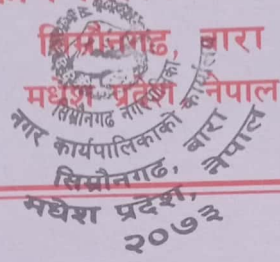 सिम्रौनगढ, बारा
मधेश प्रदेश, नेपाल
सिम्रौनगढ नगरपालिका
नगर कार्यपालिकाको कार्यालय
सिम्रौनगढ, बारा
मधेश प्रदेश, नेपाल
२०७३